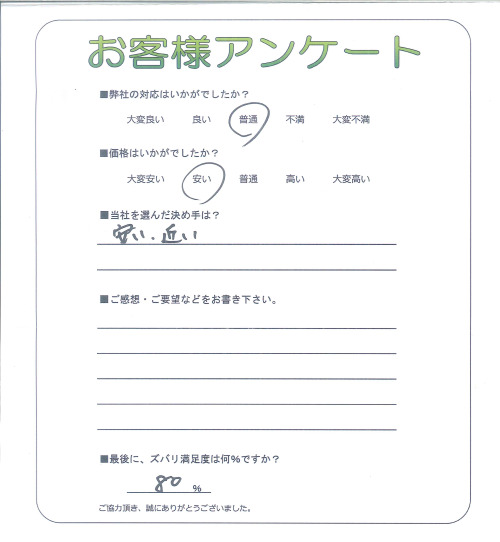 お客様アンケート
■弊社の対応はいかがでしたか？
大変良い 良い 普通 不満 大変不満
■価格はいかがでしたか？
大変安い 安い 普通 高い 大変高い
■当社を選んだ決め手は？
安い．近い
■ご感想・ご要望などをお書き下さい。
■最後に、ズバリ満足度は何％ですか？
80 ％
ご協力頂き、誠にありがとうございました。